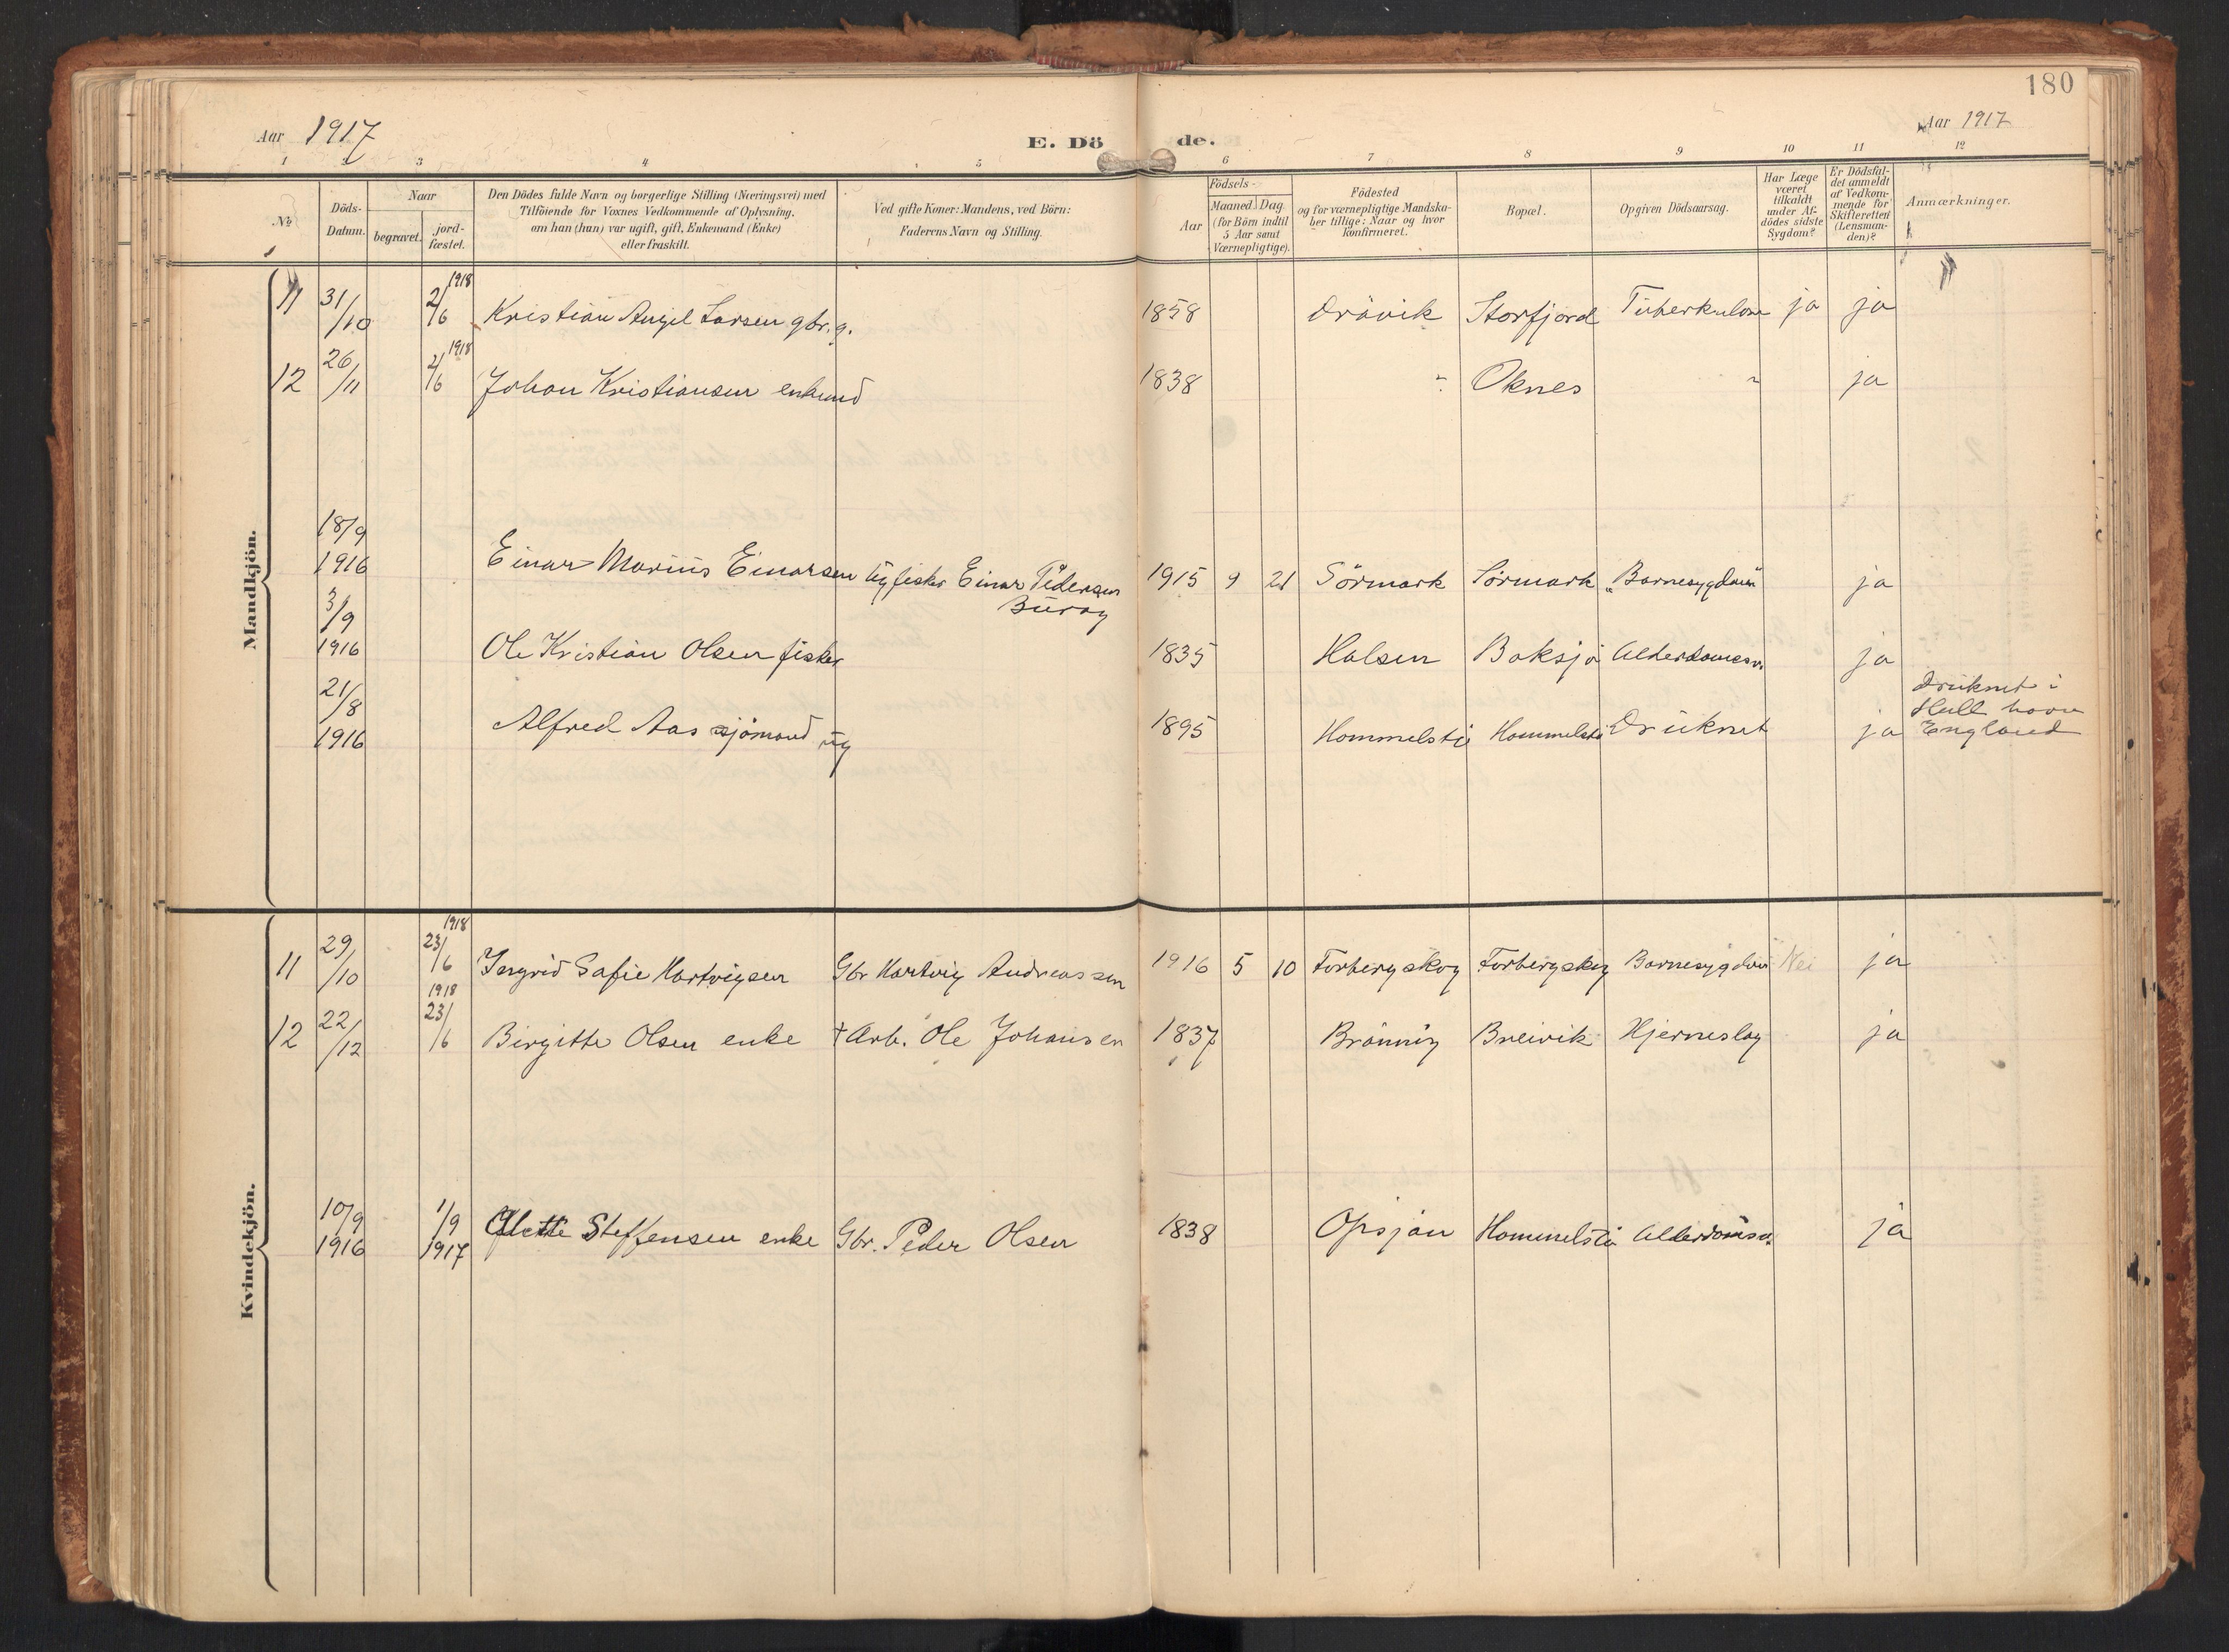 180
Aar 1917 E. Dö de. Aar 1917
1 2 3 4 5 6 7 8 9 10 11 12
No
Döds-
Datum.
Naar
begravet.
jord-
fæstet.
Den Dödes fulde Navn og borgerlige Stilling (Næringsvei) med
Tilföiende for Voxnes Vedkommende af Oplysning,
om han (hun) var ugift, gift, Enkemand (Enke)
eller fraskilt.
Ved gifte Koner: Mandens, ved Börn:
Faderens Navn og Stilling.
Födsels-
Aar
Maaned. Dag.
(for Börn indtil
5 Aar samt
Værnepligtige).
Födested
og for værnepligtige Mandska-
ber tillige: Naar og hvor
konfirmeret.
Bopæl.
Opgiven Dödsaarsag.
Har Læge
været
tilkaldt
under Af-
dödes sidste
Sygdom?
Er Dödsfal-
det anmeldt
af Vedkom-
mende for
Skifteretten
(Lensman-
den)?
Anmærkninger.
Mandkjön.
11 31/10 2/6 1918 Kristian Angel Larsen gbr. g. 1858 Drövik Storfjord Tuberkulose ja ja
12 26/11 2/6 1918 Johan Kristiansen enkemd 1838 " Oknes " ja
18/9
1916 Einar Marius Einarsen ug fisker Einar Pedersen 1915 9 21 Sörmark Sörmark Barnesygdom ja
Buröy
3/9
1916 Ole Kristian Olsen fisker 1835 Halsen Boksjö Alderdomssv. ja
21/8
1916 Alfred Aas sjömand ug 1895 Hommelstö Hommelstö Druknet ja
Druknet i
Hull havn
England
Kvindekjön.
11 29/10 23/6 1918 Ingrid Safie Hartvigsen Gbr Hartvig Andreassen 1916 5 10 Forbergskog Forbergskog Barnesygdom Nei ja
12 22/12 23/6 1918 Birgitte Olsen enke † Arb. Ole Johansen 1837 Brönnöy Breivik Hjerneslag ja
10/9
1916 1/9
1917 Steffensen enke Gbr. Peder Olsen 1838 Opsjön Hommelstö Alderdomssv. ja